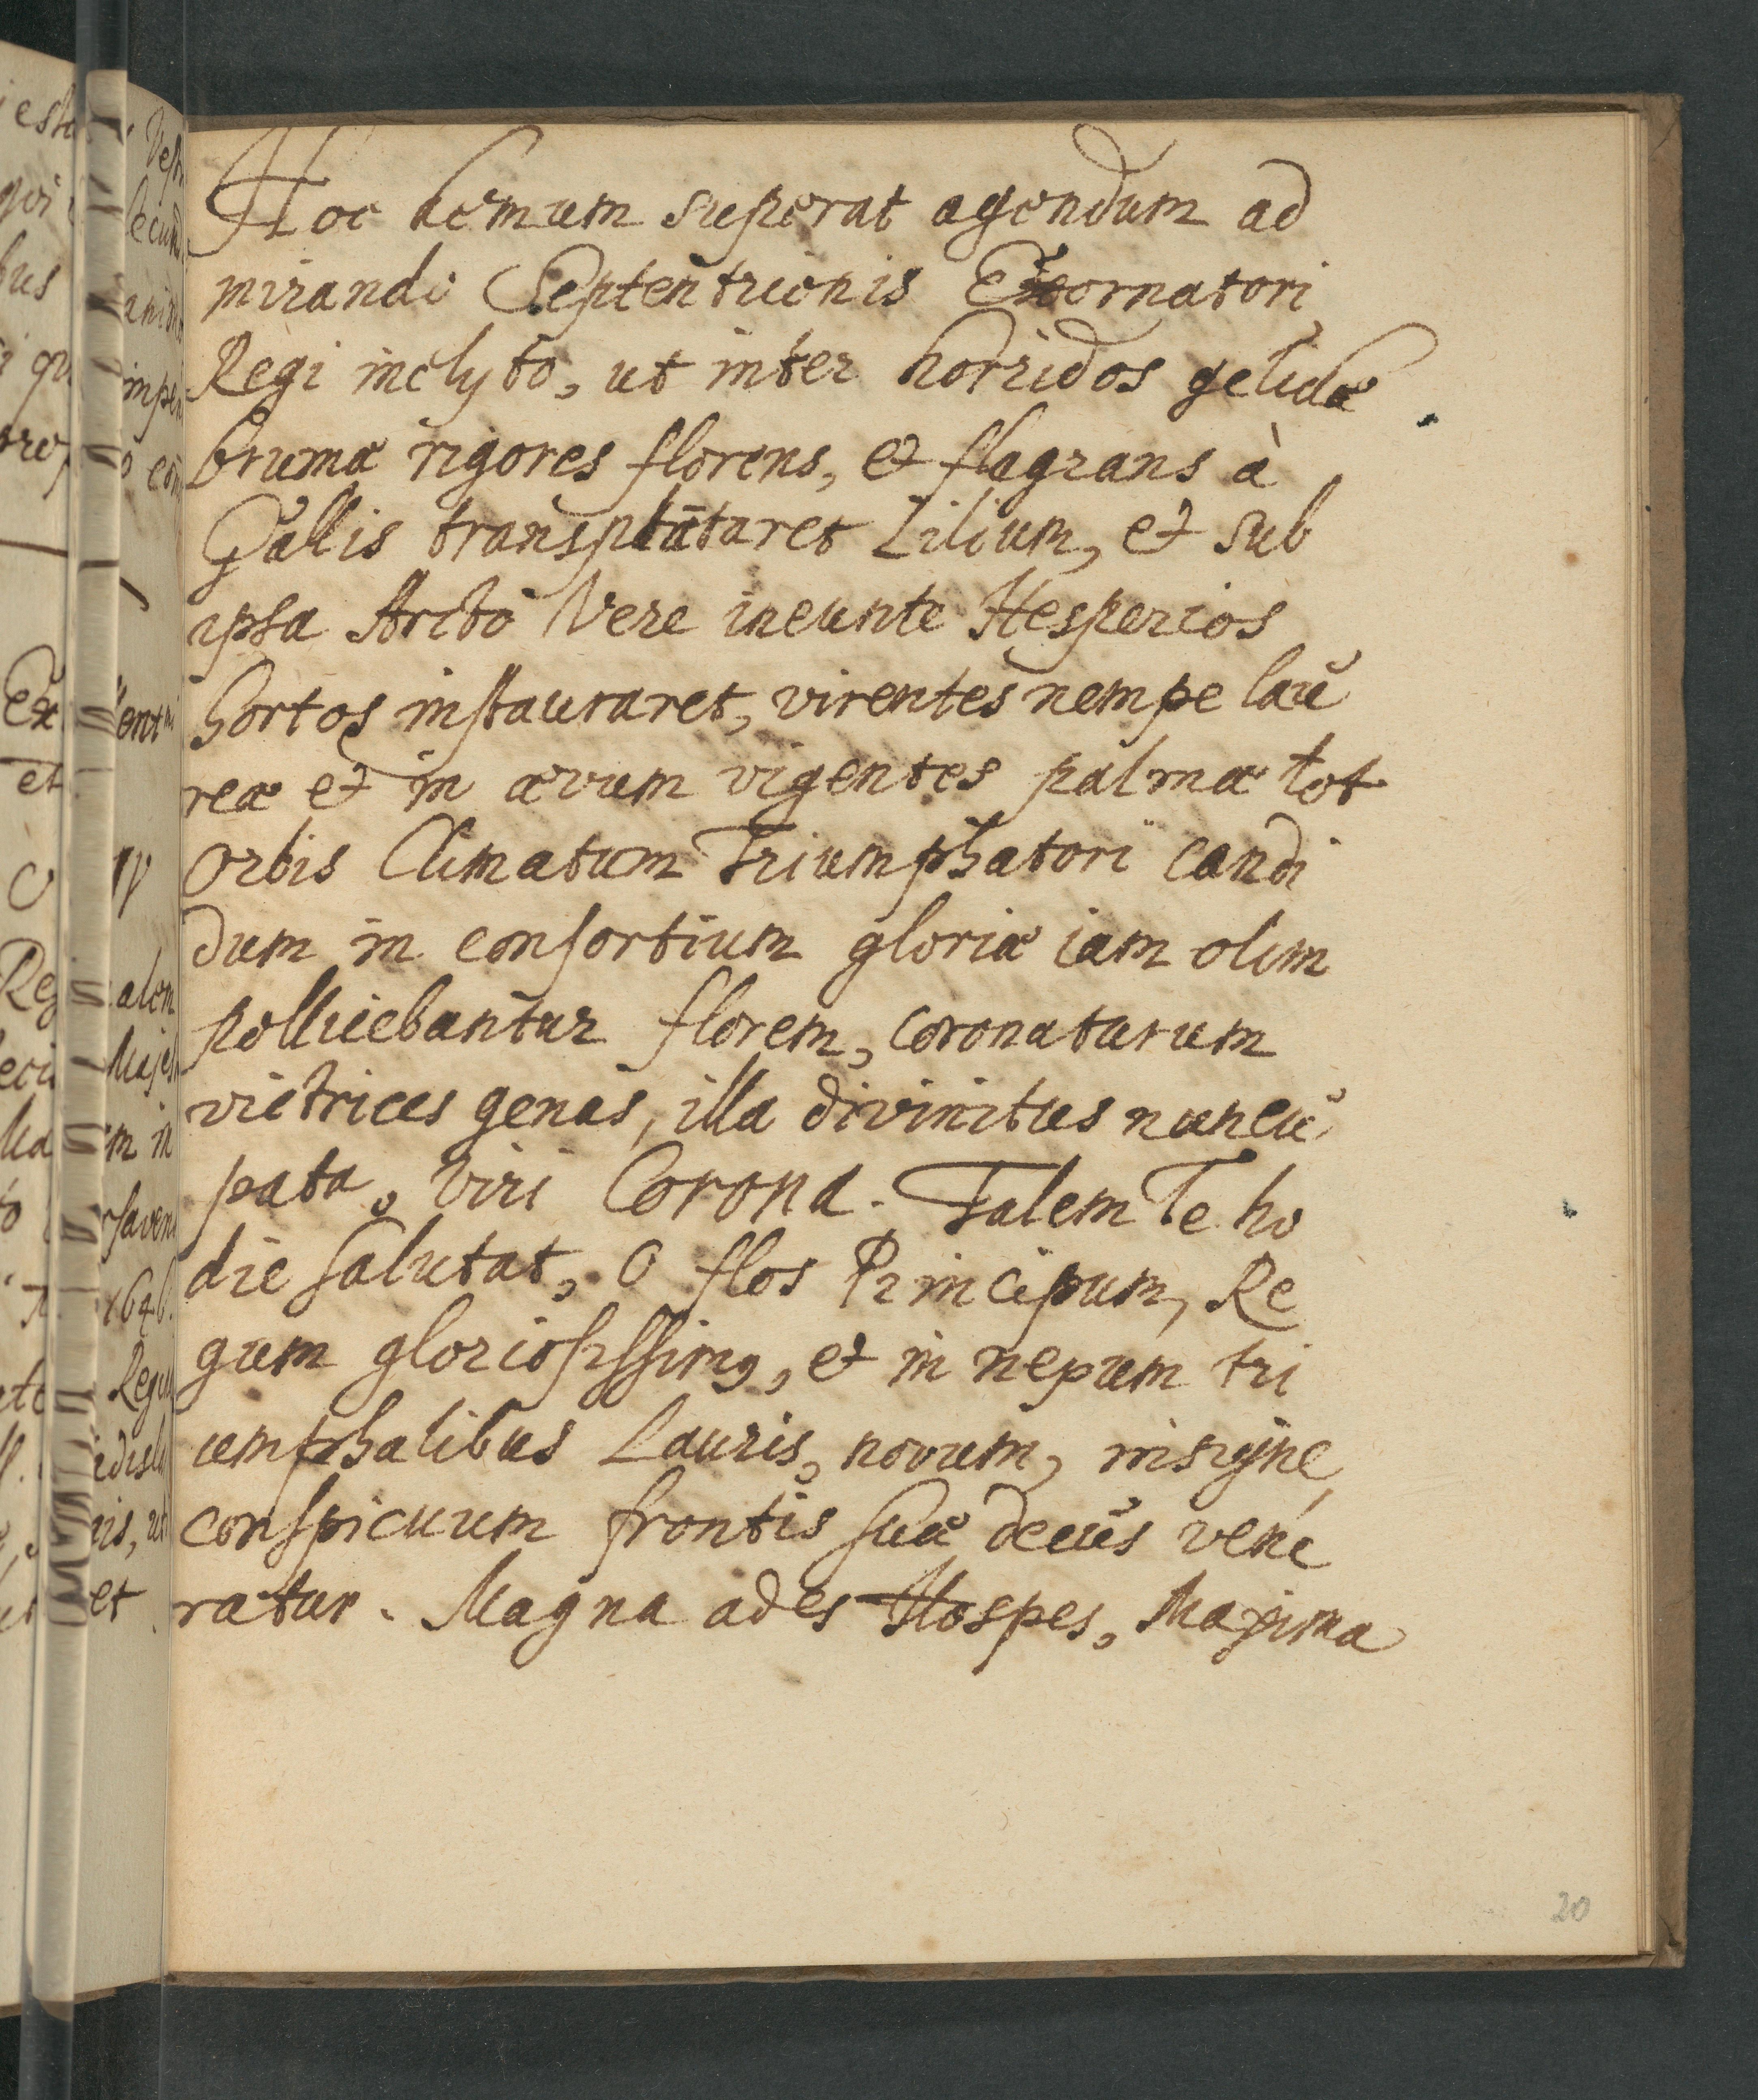 Hoc demum superat agendum ad
mirandi Septentrionis Exornatori
Regi inclyto, ut inter horridos gelidæ
brumæ rigores florens, et flagrans à
Gallis transplātaret Lilium, et sub
ipsa Arcto Vere ineunte Hesperios
hortos instauraret, virentes nempe lau
reæ et in ævum vigentes palmæ tot
Orbis Climatum Triumphatori candi
dum in consortium gloriæ iam olim
pollicebantur florem, coronaturum
victrices genas, illa divinitus nuncu
pata, Viri Corona. Talem Te ho
die salutat, O flos Principum, Re
gum gloriosissimꝰ, et in nepum tri
umphalibus Lauris, novum, insigne,
conspicuum frontis suæ decus vene
ratur. Magna ades Hospes, Maxima
20